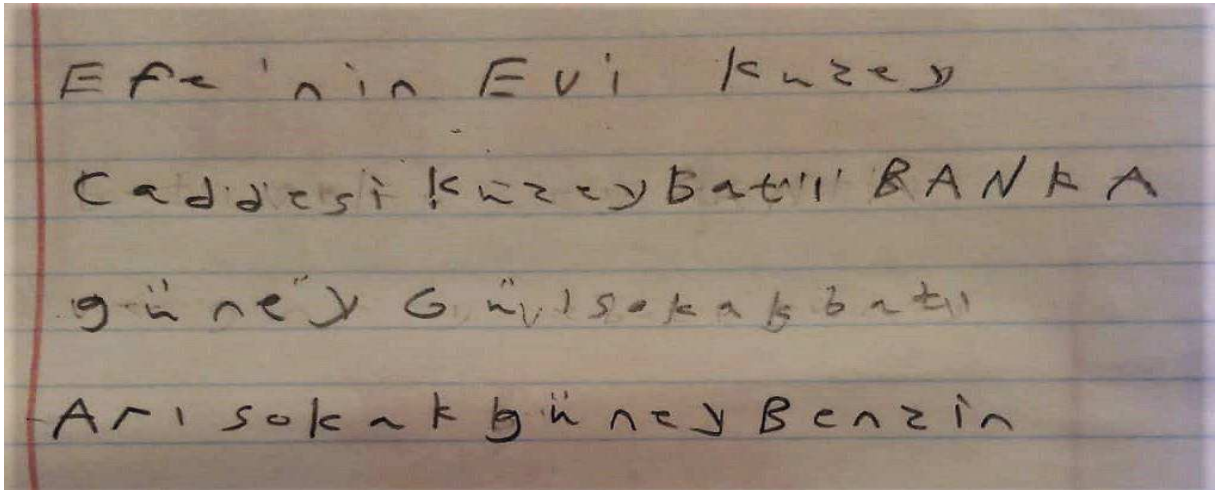 Efe'nin Evi kuzey
Caddesi kuzeybatı BANKA
güney Gül sokak batı
Arı sokak güney Benzin